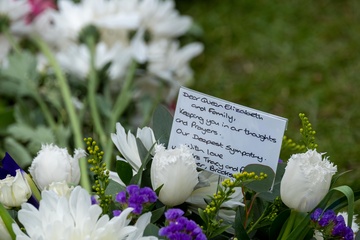 Dear Queen Elizabeth
and Family,
Keeping you in our thoughts
and Prayers.
Our Deepest Sympathy.
With love
Tracy and